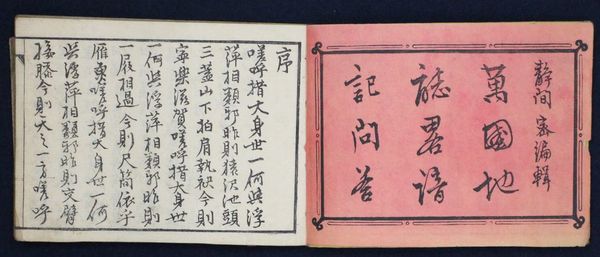 靜間密編輯
萬國地
誌畧諳
記問答
序
嗟呼措大身世一何與浮
萍相類邪昨則猿沢池頭
三蓋山下拍肩執袂今則
寧樂滋賀嗟呼措大身世
一何與浮萍相類邪昨則
一屐相過今則尺簡依乎
雁魚嗟呼措大身世一何
與浮萍相類邪昨則交臂
接膝今則天之一方嗟呼